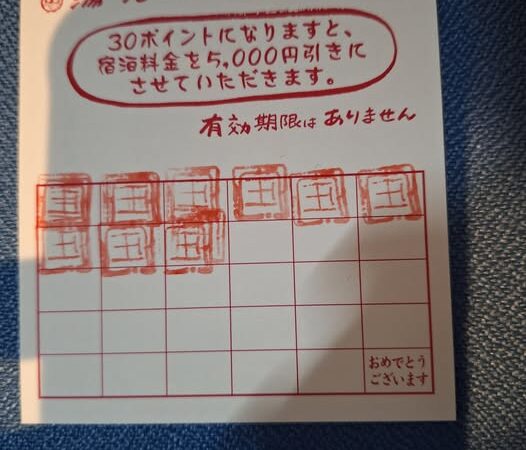 30ポイントになりますと、
宿泊料金を5,000円引きに
させていただきます。
有効期限は ありません
田 田 田 田 田 田
田 田 田
おめでとう
ございます